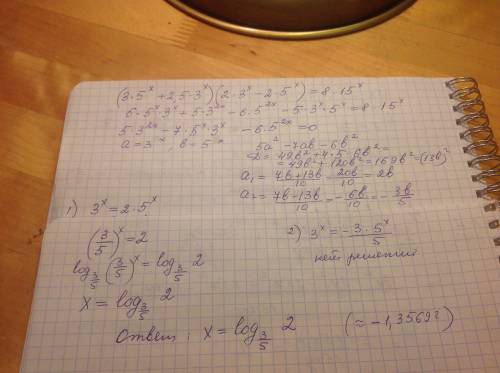 (3·5^x + 2,5·3^x)(2·3^x − 2·5^x) = 8·15^x
6·5^x·3^x + 5·3^{2x} − 6·5^{2x} − 5·3^x·5^x = 8·15^x
5·3^{2x} − 7·5^x·3^x − 6·5^{2x} = 0
a = 3^x, b = 5^x
5a² − 7ab − 6b²
D = 49b² + 4·5·6b² =
= 49b² + 120b² = 169b² = (13b)²
a₁ = (7b + 13b)/10 = 20b/10 = 2b
a₂ = (7b − 13b)/10 = −6b/10 = −3b/5
1) 3^x = 2·5^x
(3/5)^x = 2
log_{3/5} (3/5)^x = log_{3/5} 2
x = log_{3/5} 2
2) 3^x = −3·5^x/5
нет решений
Ответ: x = log_{3/5} 2 (≈ −1,35692)